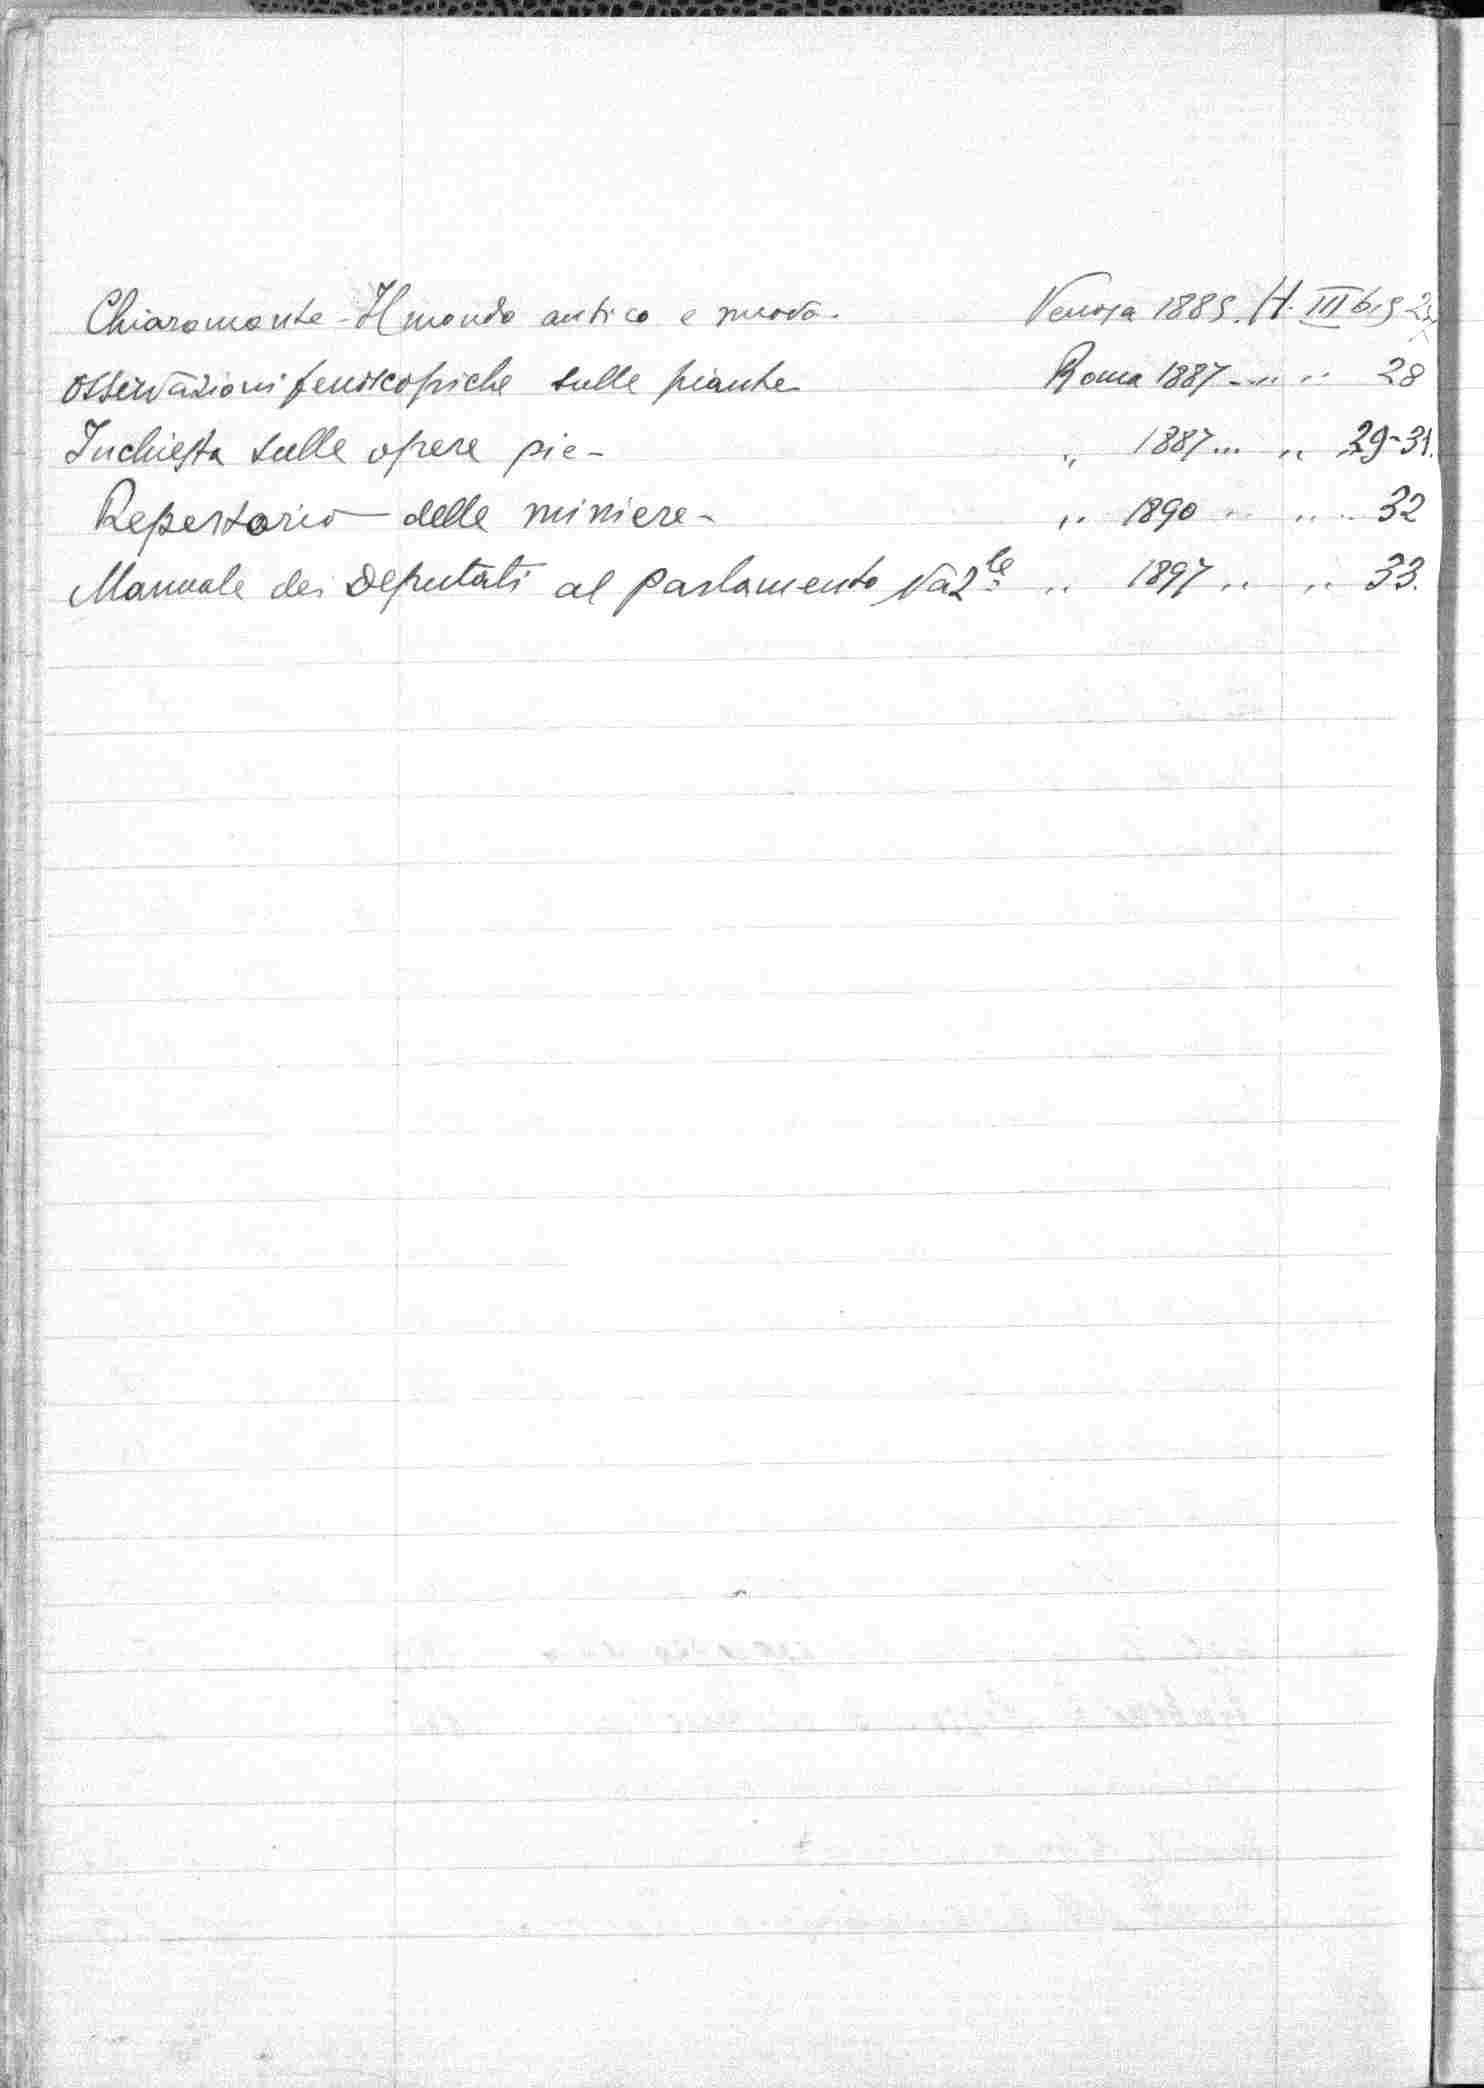 Chiaramonte - Il mondo antico e nuovo. Venosa 1885. H. III bis 2
Osservazioni fenoscopiche sulle piante Roma 1887 - „ „ 28
Inchiesta sulle opere pie - „ 1887 „ „ 29-31.
Repertorio delle miniere - „ 1890 „ „ 32
Manuale dei Deputati al parlamento Naz.le „ 1897 „ „ 33.